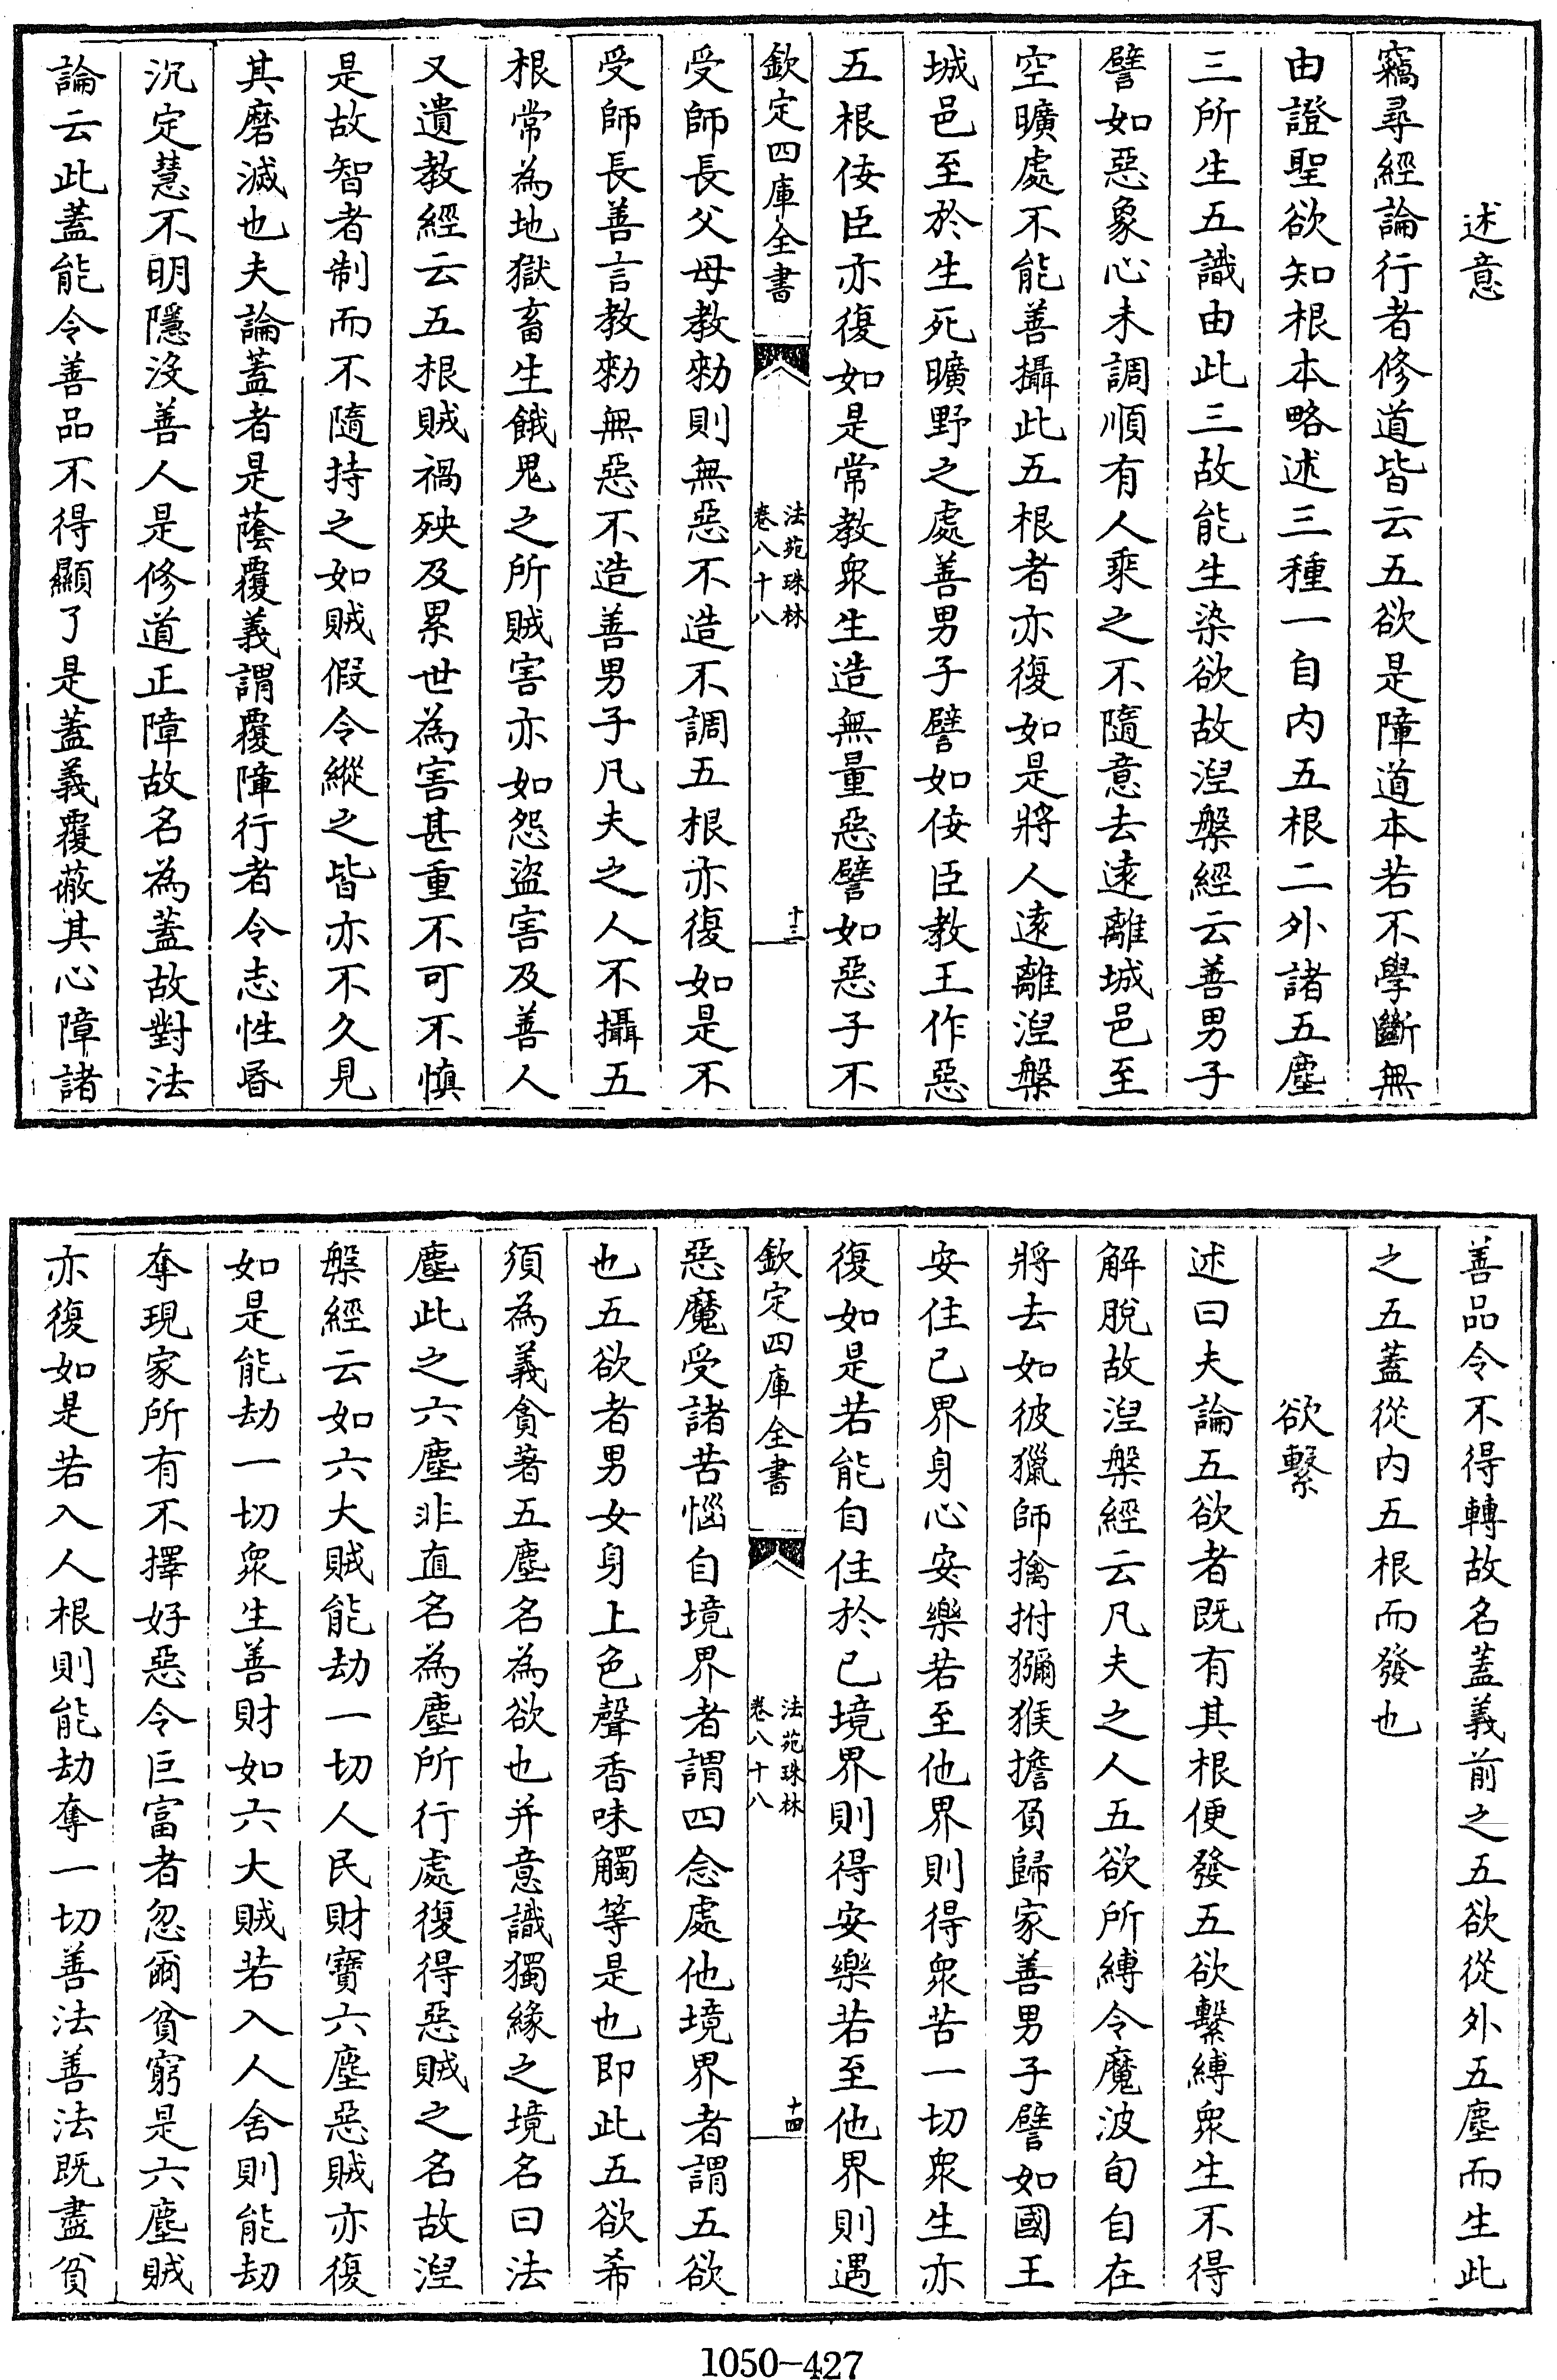 述意
竊尋經論行者修道皆云五欲是障道本若不學斷無
由證聖欲知根本略述三種一自内五根二外諸五塵
三所生五識由此三故能生染欲故湼槃經云善男子
譬如惡象心未調順有人乘之不隨意去逺離城邑至
空曠處不能善攝此五根者亦復如是將人逺離湼槃
城邑至於生死曠野之處善男子譬如佞臣教王作惡
五根佞臣亦復如是常教衆生造無量惡譬如惡子不
欽定四庫全書
法苑珠林
卷八十八
十三
受師長父母教勑則無惡不造不調五根亦復如是不
受師長善言教勑無惡不造善男子凡夫之人不攝五
根常為地獄畜生餓鬼之所賊害亦如怨盜害及善人
又遺教經云五根賊禍殃及累世為害甚重不可不慎
是故智者制而不隨持之如賊假令縱之皆亦不久見
其磨滅也夫論蓋者是蔭覆義謂覆障行者令志性昏
沉定慧不明隱没善人是修道正障故名為蓋故對法
論云此蓋能令善品不得顯了是蓋義覆蔽其心障諸
善品令不得轉故名蓋義前之五欲從外五塵而生此
之五蓋從内五根而發也
欲繫
述曰夫論五欲者既有其根便發五欲繫縛衆生不得
解脫故湼槃經云凡夫之人五欲所縛令魔波旬自在
將去如彼獵師擒捬獼猴擔負歸家善男子譬如國王
安住己界身心安樂若至他界則得衆苦一切衆生亦
復如是若能自住於己境界則得安樂若至他界則遇
欽定四庫全書
法苑珠林
卷八十八
十四
惡魔受諸苦惱自境界者謂四念處他境界者謂五欲
也五欲者男女身上色聲香味觸等是也即此五欲希
須為義貪著五塵名為欲也并意識獨緣之境名曰法
塵此之六塵非直名為塵所行處復得惡賊之名故湼
槃經云如六大賊能劫一切人民財寶六塵惡賊亦復
如是能劫一切衆生善財如六大賊若入人舍則能劫
奪現家所有不擇好惡令巨富者忽爾貧窮是六塵賊
亦復如是若入人根則能劫奪一切善法善法既盡貧
1050-427